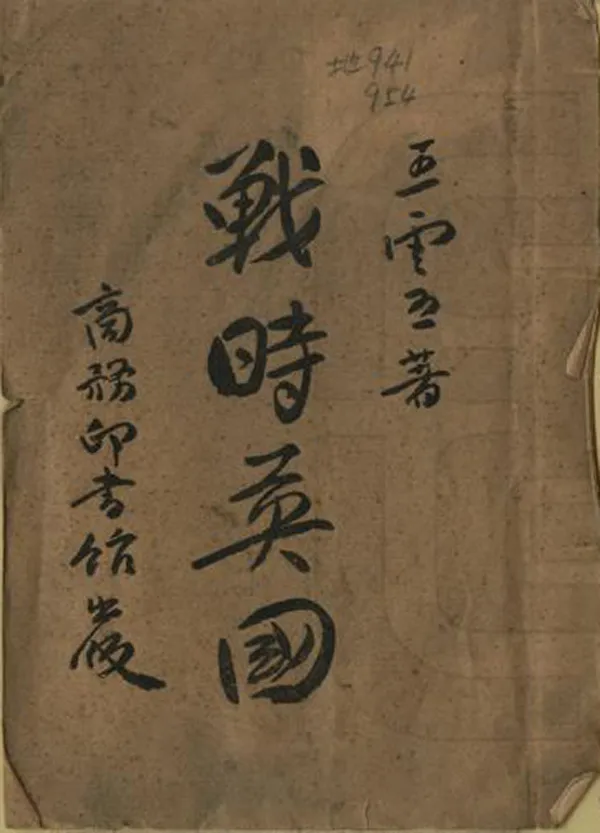 地941
954
王雲五著
戰時英國
商務印書館出版